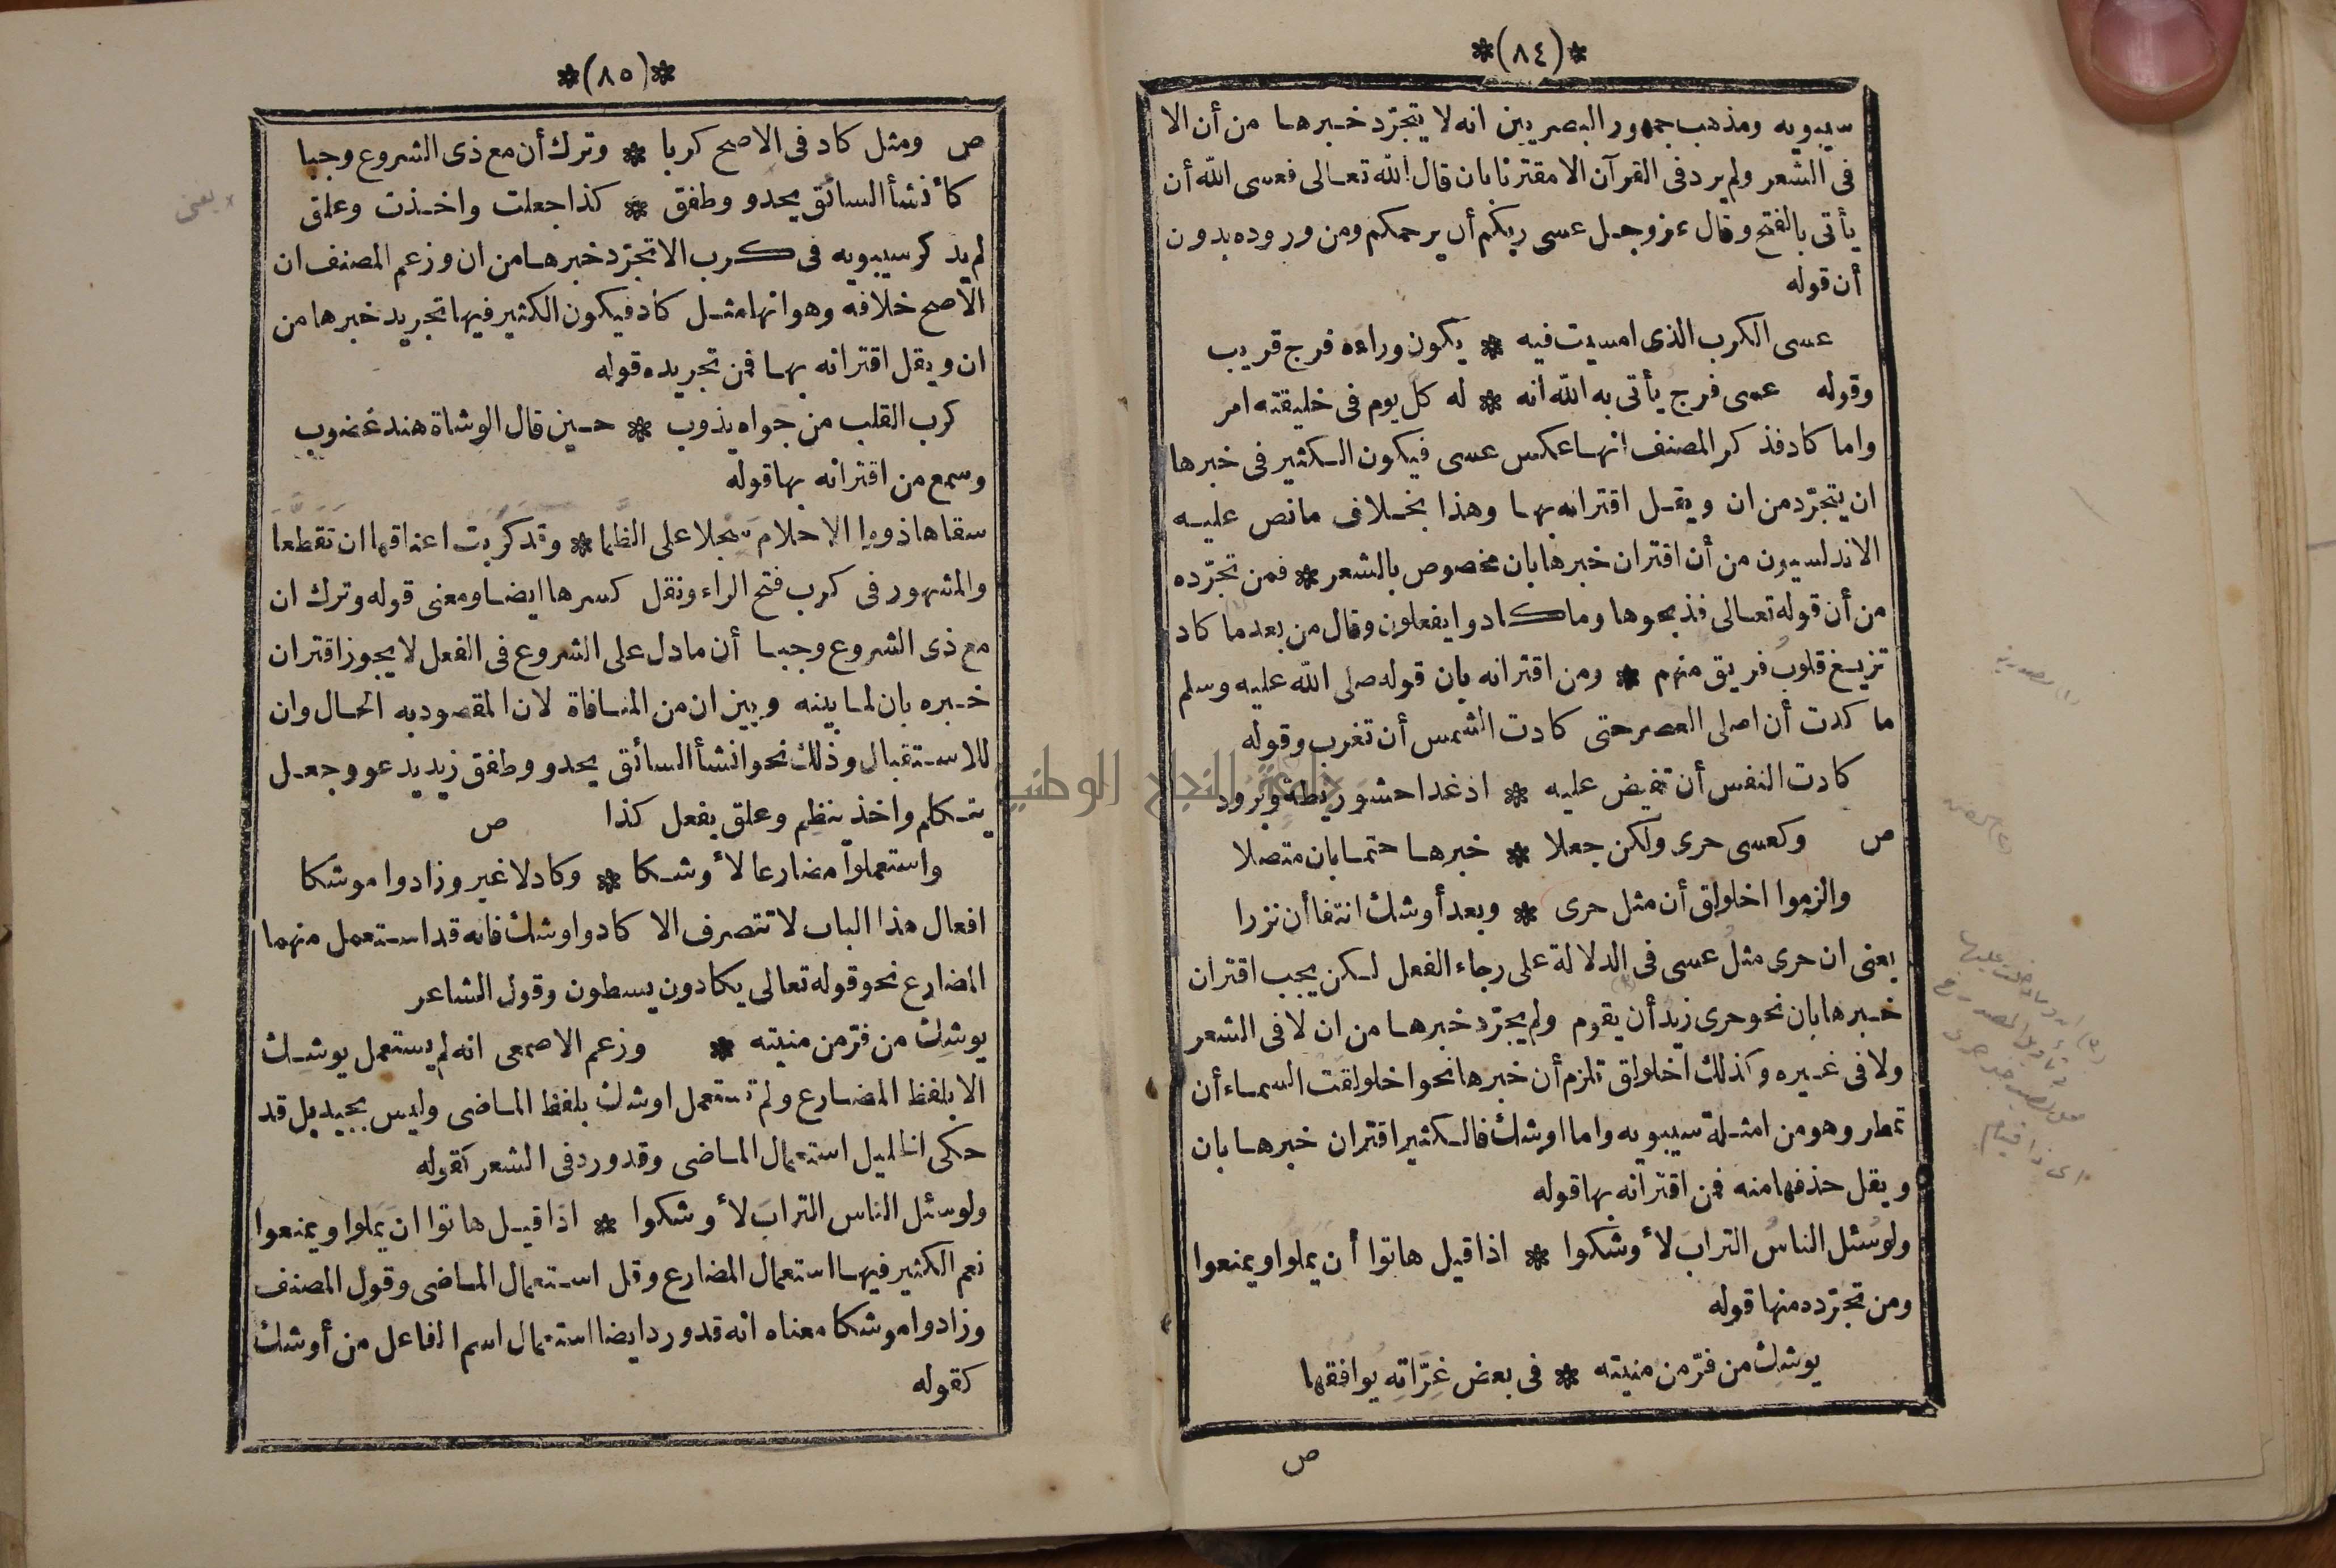 *(٨٤)*
سيبويه ومذهب جمهور البصريين انه لا يتجرّد خبرها من أن الا
فى الشعر ولم يرد فى القرآن الا مقترنا بان قال الله تعالى فعسى الله أن
يأتى بالفتح وقال عز وجل عسى ربكم أن يرحمكم ومن وروده بدون
أن قوله
عسى الكرب الذى امسيت فيه * يكون وراءه فرج قريب
وقوله عسى فرج يأتى به الله انه * له كل يوم فى خليقته امر
واما كاد فذكر المصنف انها عكس عسى فيكون الكثير فى خبرها
ان يتجرّد من ان ويقل اقترانه بها وهذا بخلاف ما نص عليه
الاندلسيون من أن اقتران خبرها بان مخصوص بالشعر * فمن تجرّده
من أن قوله تعالى فذبحوها وما كادوا يفعلون وقال من بعد ما كاد
تزيغ قلوب فريق منهم * ومن اقترانه بان قوله صلى الله عليه وسلم
ما كدت أن اصلى العصر حتى كادت الشمس أن تغرب وقوله
كادت النفس أن تفيض عليه * اذ غدا حشو ريطة وبرود
ص وكعسى حرى ولكن جعلا * خبرها حتما بان متصلا
والزموا اخلولق أن مثل حرى * وبعد أوشك انتفا أن نزرا
يعنى ان حرى مثل عسى فى الدلالة على رجاء الفعل لكن يجب اقتران
خبرها بان نحو حرى زيد أن يقوم ولم يجرّد خبرها من ان لا فى الشعر
ولا فى غيره وكذلك اخلولق تلزم أن خبرها نحو اخلولقت السماء أن
تمطر وهو من امثلة سيبويه واما اوشك فالكثير اقتران خبرها بان
ويقل حذفها منه فمن اقترانه بها قوله
ولو سُئل الناسُ الترابَ لأوشكوا * اذا قيل هاتوا أن يملوا ويمنعوا
ومن تجرّده منها قوله
يوشِك من فرّ من منيته * فى بعض غِرّاتِه يُوافِقُها
ص
*(٨٥)*
ص ومثل كاد فى الاصح كربا * وترك أن مع ذى الشروع وجبا
كأنشأ السائق يحدو وطفق * كذا جعلت واخذت وعلق
يعنى
لم يذكر سيبويه فى كرب الا تجرّد خبرها من ان وزعم المصنف ان
الأصح خلافه وهو انها مثل كاد فيكون الكثير فيها تجريد خبرها من
ان ويقل اقترانه بها فمن تجريده قوله
كرب القلب من جواه يذوب * حين قال الوشاة هند غضوب
وسمع من اقترانه بها قوله
سقاها ذووا الاحلام سجلا على الظما * وقد كَرَبَت اعناقها ان تَقَطَّعَا
والمشهور فى كرب فتح الراء ونقل كسرها ايضا ومعنى قوله وترك ان
مع ذى الشروع وجبا أن ما دل على الشروع فى الفعل لا يجوز اقتران
خبره بان لما بينه وبين ان من المنافاة لان المقصود به الحال وان
للاستقبال وذلك نحو انشأ السائق يحدو وطفق زيد يدعو وجعل
يتكلم واخذ ينظم وعلق يفعل كذا ص
واستعملوا مضارعا لأوشكا * وكاد لا غير وزادوا موشكا
افعال هذا الباب لا تتصرف الا كاد واوشك فانه قد استعمل منهما
المضارع نحو قوله تعالى يكادون يسطون وقول الشاعر
يوشِك من فرّ من منيته * وزعم الاصمعى انه لم يستعمل يوشك
الا بلفظ المضارع ولم تستعمل اوشك بلفظ الماضى وليس بجيد بل قد
حكى الخليل استعمال الماضى وقد ورد فى الشعر كقوله
ولو سئل الناس التراب لأوشكوا * اذا قيل هاتوا ان يَملوا ويمنعوا
نعم الكثير فيها استعمال المضارع وقل استعمال الماضى وقول المصنف
وزادوا موشكا معناه انه قد ورد ايضا استعمال اسم الفاعل من أوشك
كقوله
جامعة النجاح الوطنية